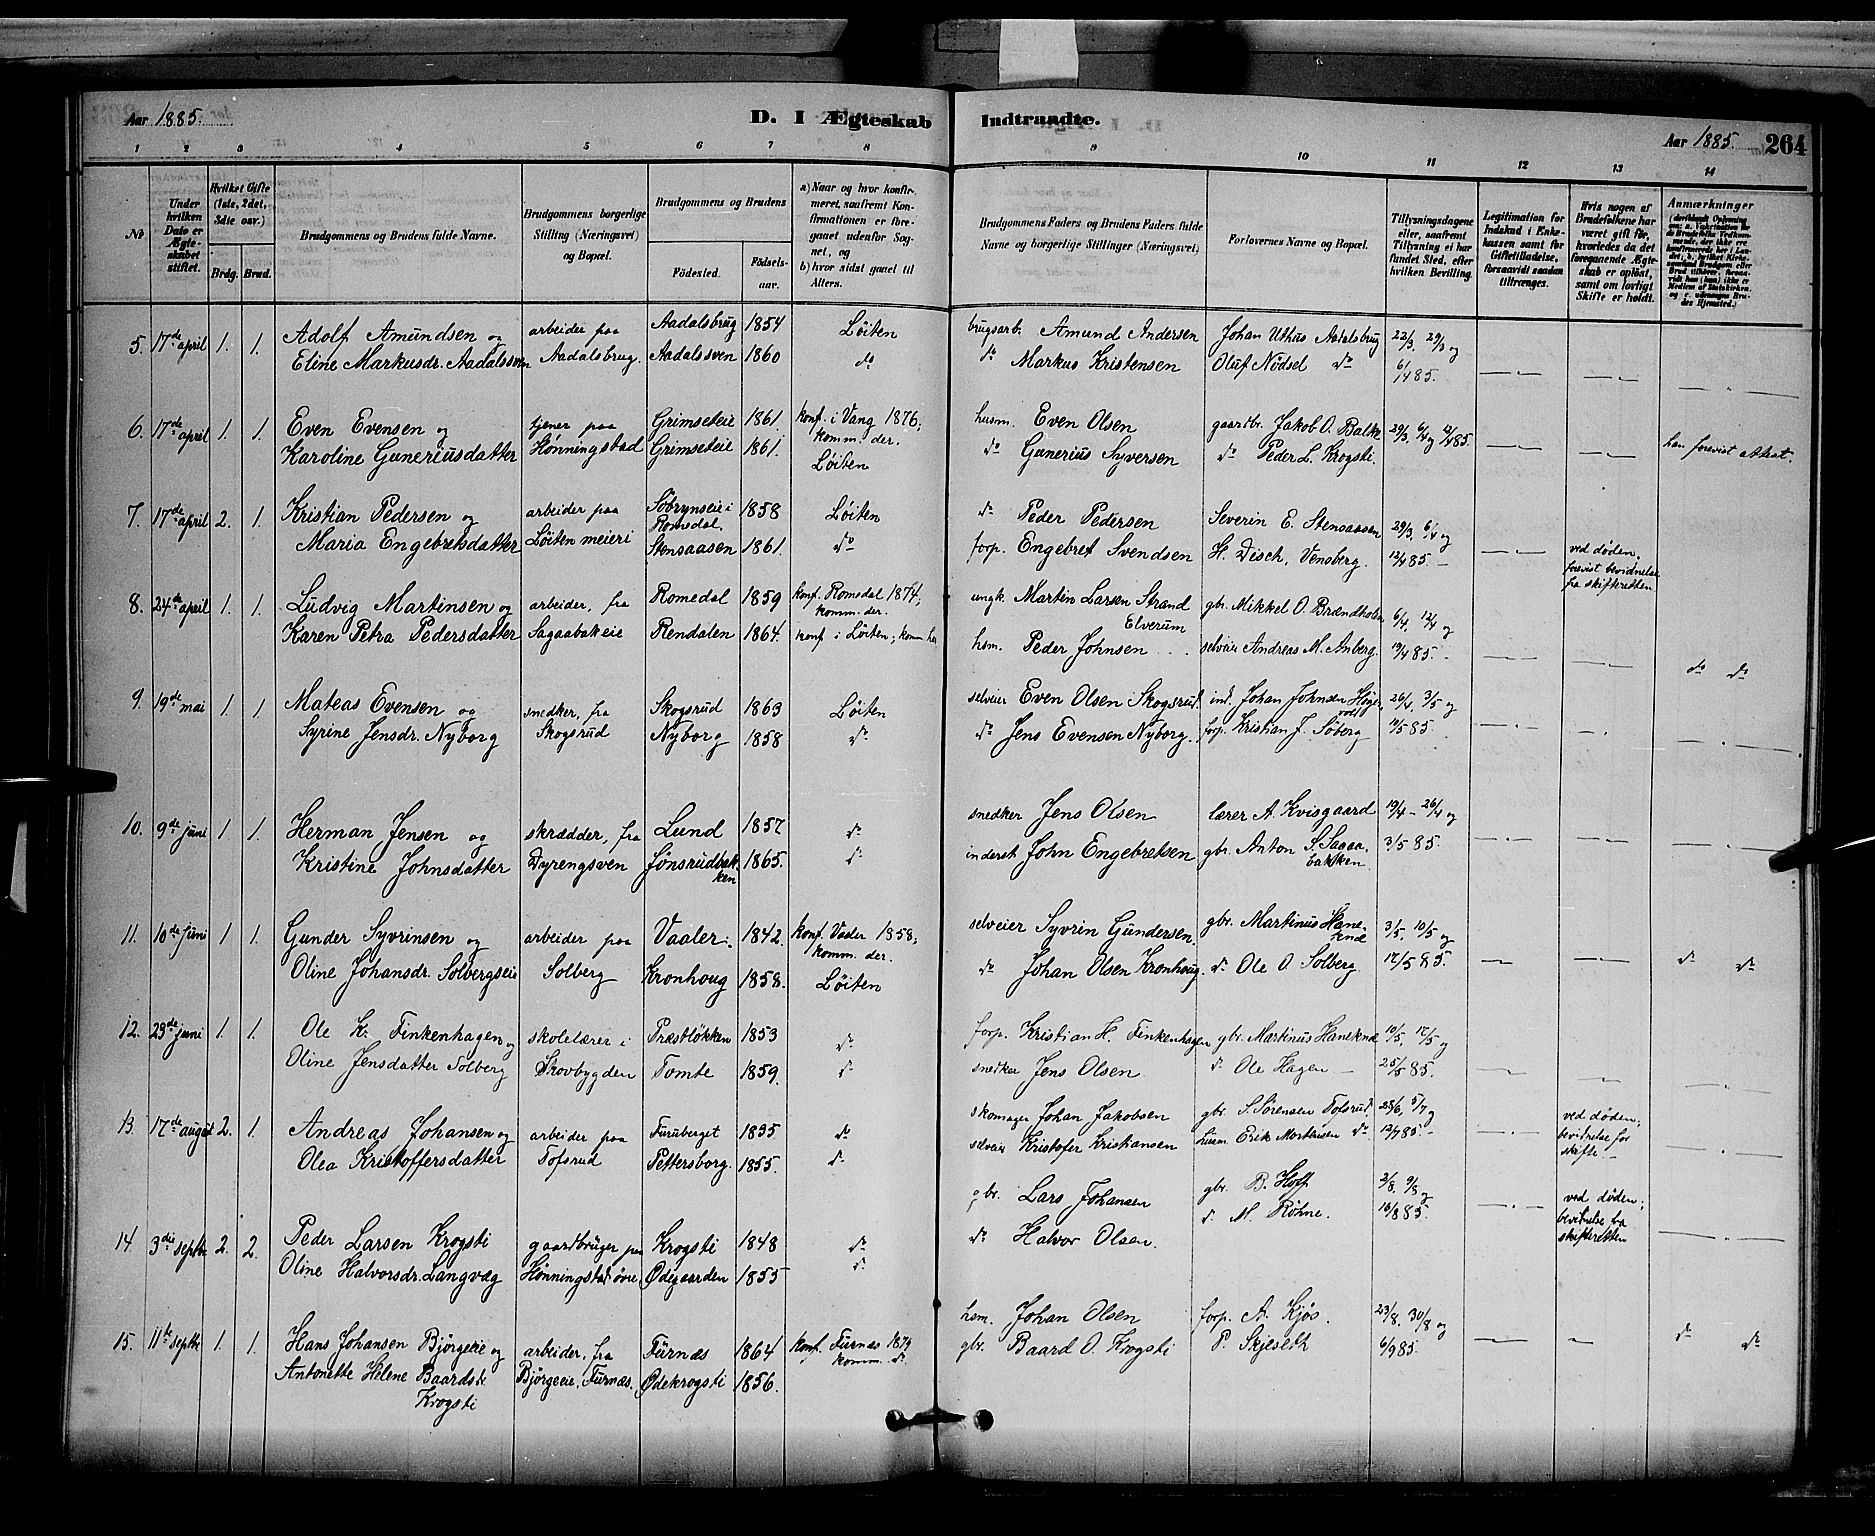 Aar 1885.
D. I Ægteskab Indtraadte.
Aar 1885. 264
1 2 3 4 5 6 7 8 9 10 11 12 13 14
No
Under hvilken Dato er Ægteskabet stiftet.
Hvilket Gifte (1ste, 2det, 3dte osv.)
Brdg. Brud.
Brudgommens og Brudens fulde Navne.
Brudgommens borgerlige Stilling (Næringsvei) og Bopæl.
Brudgommens og Brudens
Fødested. Fødselsaar.
a) Naar og hvor konfirmeret, saafremt Konfirmationen er foregaaet udenfor Sognet, og
b) hvor sidst gaaet til Alters.
Brudgommens Faders og Brudens Faders fulde Navne og borgerlige Stillinger (Næringsvei)
Forlovernes Navne og Bopæl.
Tillysningsdagene eller, saafremt Tillysning ei har fundet Sted, efter hvilken Bevilling.
Legitimation for Indskud i Enkekassen samt for Giftetilladelse, forsaavidt saadan tiltrænges.
Hvis nogen af Brudefolkene har været gift før, hvorledes da det foregaaende Ægteskab er opløst, samt om lovligt Skifte er holdt.
Anmærkninger
5. 17de april 1. 1. Adolf Amundsen og arbeider paa Aadalsbrug 1854 Løiten brugsarb. Amund Andersen Johan Uthus Aadalsbrug 22/3. 29/3 og
Eline Markusdr. Aadalssven Aadalsbrug. Aadalsven 1860 do do Markus Kristensen Oluf Nødsel do 6/4 85.
6. 17de april 1. 1. Even Evensen og tjener paa Grimseteie 1861. konf. i Vang 1876; komm. der. husm. Even Olsen gaardbr. Jakob O. Balke 29/3. 6/4 og 12/4 85.
Karoline Guneriusdatter Hønningstad Grimseteie 1861. Løiten do Gunerius Syversen do Peder L. Krogsti. han forevist attest.
7. 17de april 2. 1. Kristian Pedersen og arbeider paa Søbrynseie i Romsdal. 1858 Løiten do Peder Pedersen Severin E. Stensaasen 29/3. 6/4 og
Maria Engebretsdatter Løiten meieri Stensaasen 1861. do forp. Engebret Svendsen H. Disch, Vensberg. 12/4 85. ved døden. forevist bevidnelse fra skifteretten
8. 24de april 1. 1. Ludvig Martinsen og arbeider, fra Romedal 1859 konf. Romsdal 1874; komm. der. ungk. Martin Larsen Strand Elverum gbr. Mikkel O. Brændholen 6/4. 12/4 og
Karen Petra Pedersdatter Sagaabakeie Rendalen 1864. konf i Løiten; komm her hsm. Peder Johnsen selveier Andreas M. Anberg. 19/4 85. do do
9. 19de mai 1. 1. Mateas Evensen og snedker, fra Skogsrud 1863 Løiten selveier Even Olsen Skogsrud. ind. Johan Johnsen 26/4. 3/5 og
Syrine Jensdr. Nyborg Skogsrud Nyborg 1858 do do Jens Evensen Nyborg. forp. Kristian J. Søberg 10/5 85.
10. 9de juni 1. 1. Herman Jensen og skrædder, fra Lund 1857 do snedker Jens Olsen lærer A. Kvisgaard 19/4 - 26/4 og
Kristine Johnsdatter Dyrengsven Jønsrudbakken 1865. do inderst John Engebretsen gbr. Anton S. Sagaabakken 3/5 85.
11. 10de juni 1. 1. Gunder Syvrinsen og arbeider paa Vaaler 1842. konf. Vaaler 1858; komm. der. selveier Syvrin Gundersen. gbr. Martinus Haneknæ 3/5. 10/5 og
Oline Johansdr. Solbergseie Solberg Kronhoug 1858. Løiten do Johan Olsen Kronhoug. do Ole O. Solberg. 17/5 85. do do
12. 23de juni 1. 1. Ole K. Finkenhagen og skolelærer i Præstløkken 1853 do forp. Kristian H. Finkenhagen gbr. Martinus Haneknæ 10/5. 17/5 og
Oline Jensdatter Solberg Skovbygden Tomte 1859. do snedker Jens Olsen. do Ole Hagen 25/5 85.
13. 17de august 2. 1. Andreas Johansen og arbeider paa Furuberget 1835 do skomager Johan Jakobsen gbr. S. Sørensen Tofsrud 28/6. 5/7 og
Olea Kristoffersdatter Tofsrud Pettersborg. 1855. do selveier Kristofer Kristiansen husm. Erik Mortensen do 12/7 85. ved døden; bevidnelse for skifte.
14. 3die septbr 2. 2. Peder Larsen Krogsti gaardbruger paa Krogsti 1848 do gbr. Lars Johansen gbr. B. Hoff 2/8. 9/8 og
Oline Halvorsdr. Langvæg Hønningstad øvre Ødegaarden 1855 do do Halvor Olsen. do M. Røhne. 16/8 85. ved døden; bevidnelse fra skifteretten
15. 11te septbr 1. 1. Hans Johansen Bjørgeeie og arbeider, fra Furnæs 1864 konf. Furnæs 1879 komm. do. hsm. Johan Olsen forp. A. Kjøs. 23/8. 30/8 og
Antonette Helene Baardsdr Krogsti Bjørgeeie, Furnæs. Ødekrogsti 1856. gbr. Baard O. Krogsti P. Skjeseth 6/9 85. do do